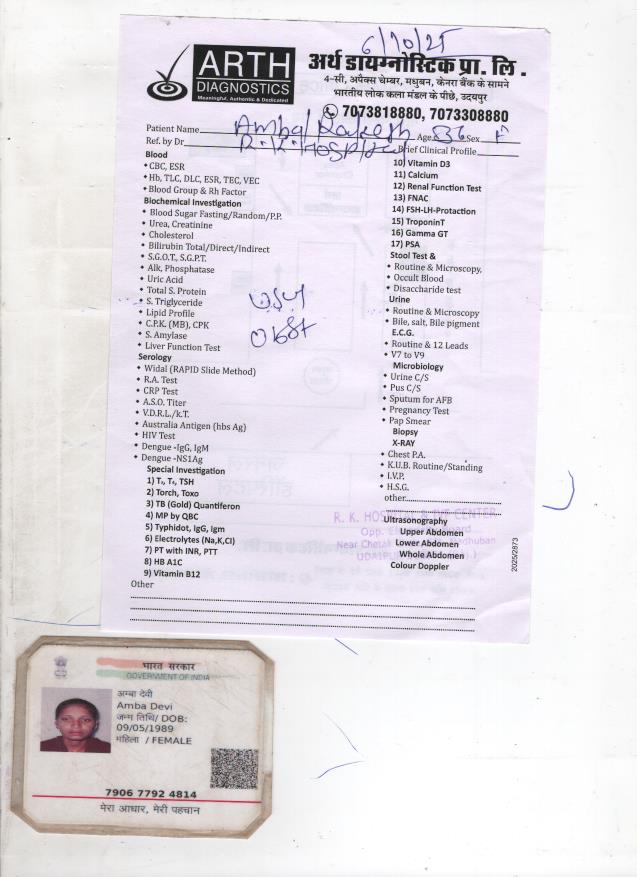 6/10/25
ARTH
DIAGNOSTICS
Meaningful, Authentic & Dedicated
अर्थ डायग्नोस्टिक प्रा. लि.
4-सी, अपैक्स चेम्बर, मधुबन, केनरा बैंक के सामने
भारतीय लोक कला मंडल के पीछे, उदयपुर
7073818880, 7073308880
Patient Name Amba/Rakesh Age 36 Sex F
Ref. by Dr R.K. Hospital Brief Clinical Profile
Blood
CBC, ESR
Hb, TLC, DLC, ESR, TEC, VEC
Blood Group & Rh Factor
Biochemical Investigation
Blood Sugar Fasting/Random/P.P.
Urea, Creatinine
Cholesterol
Bilirubin Total/Direct/Indirect
S.G.O.T., S.G.P.T.
Alk, Phosphatase
Uric Acid
Total S. Protein
S. Triglyceride
Lipid Profile
C.P.K. (MB), CPK
S. Amylase
Liver Function Test
Serology
Widal (RAPID Slide Method)
R.A. Test
CRP Test
A.S.O. Titer
V.D.R.L./k.T.
Australia Antigen (hbs Ag)
HIV Test
Dengue -IgG, IgM
Dengue -NS1Ag
Special Investigation
1) T₃, T₄, TSH
2) Torch, Toxo
3) TB (Gold) Quantiferon
4) MP by QBC
5) Typhidot, IgG, Igm
6) Electrolytes (Na,K,CI)
7) PT with INR, PTT
8) HB A1C
9) Vitamin B12
Other
USG
Obst
10) Vitamin D3
11) Calcium
12) Renal Function Test
13) FNAC
14) FSH-LH-Protaction
15) TroponinT
16) Gamma GT
17) PSA
Stool Test &
Routine & Microscopy,
Occult Blood
Disaccharide test
Urine
Routine & Microscopy
Bile, salt, Bile pigment
E.C.G.
Routine & 12 Leads
V7 to V9
Microbiology
Urine C/S
Pus C/S
Sputum for AFB
Pregnancy Test
Pap Smear
Biopsy
X-RAY
Chest P.A.
K.U.B. Routine/Standing
I.V.P.
H.S.G.
other
R. K. HOSPITAL & IVF CENTER
Ultrasonography
Upper Abdomen
Lower Abdomen
Whole Abdomen
Colour Doppler
Opp.
Near Chetak Madhuban
UDAIPUR
2025/2873
भारत सरकार
GOVERNMENT OF INDIA
अम्बा देवी
Amba Devi
जन्म तिथि/ DOB:
09/05/1989
महिला / FEMALE
7906 7792 4814
मेरा आधार, मेरी पहचान